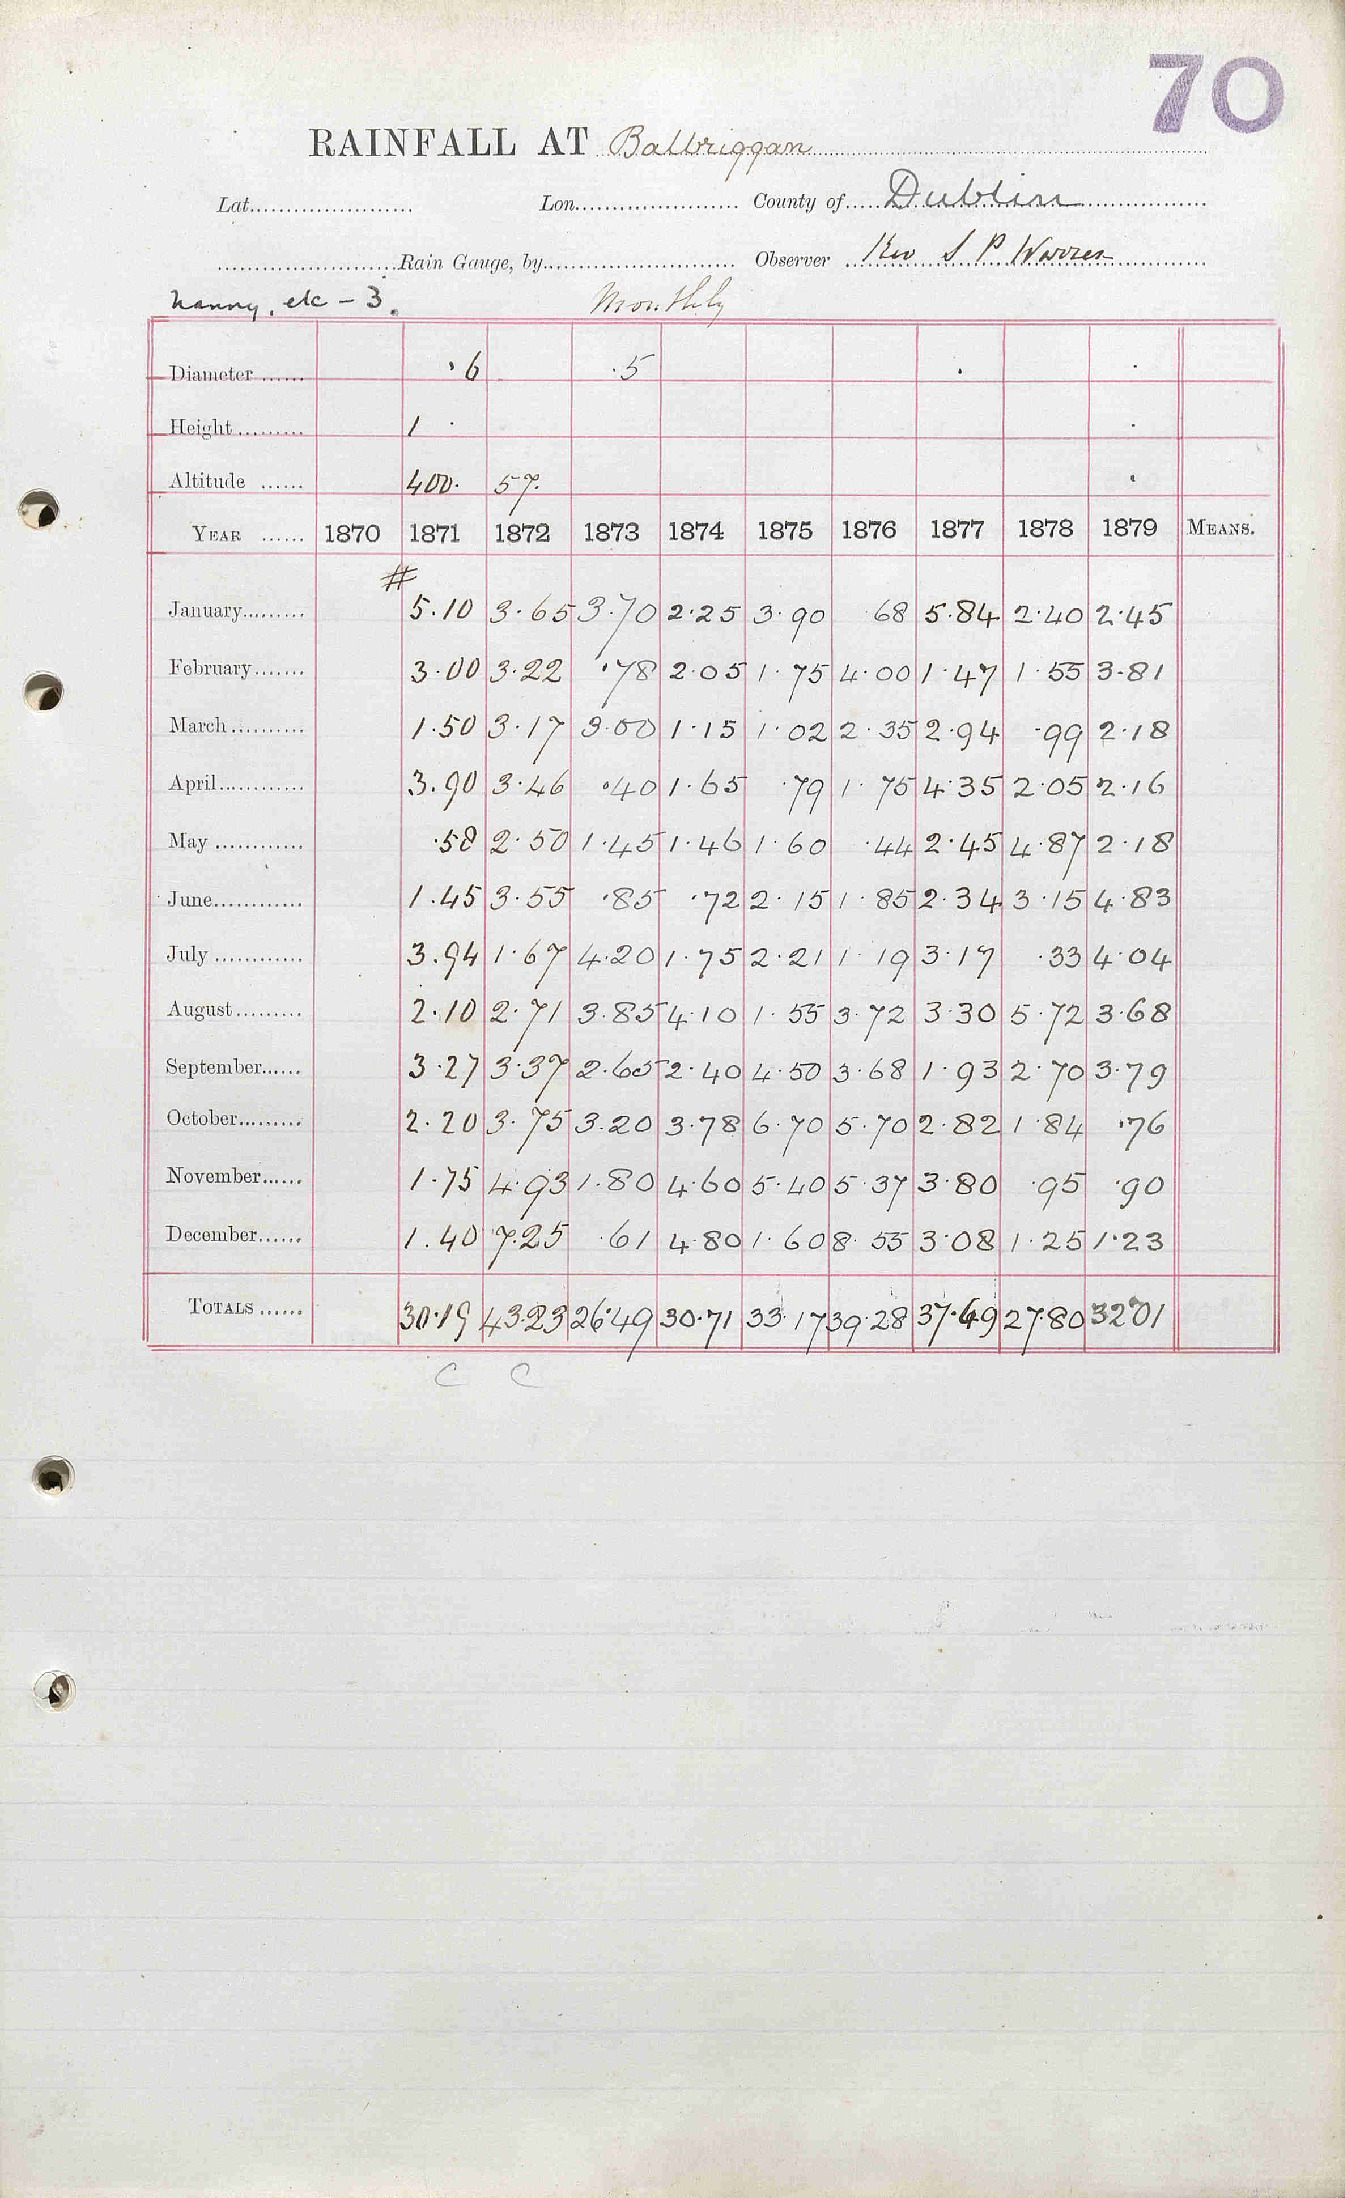 70
RAINFALL AT Balbriggan
Lat. Lon. County of Dublin
Rain Gauge, by Observer Rev S P Warren
Nanny, etc - 3. Monthly
Diameter ·6 ·5
Height 1 ·
Altitude 400· 57·
YEAR 1870 1871 1872 1873 1874 1875 1876 1877 1878 1879 MEANS.
#
January 5·10 3·65 3·70 2·25 3·90 ·68 5·84 2·40 2·45
February 3·00 3·22 ·78 2·05 1·75 4·00 1·47 1·55 3·81
March 1·50 3·17 3·00 1·15 1·02 2·35 2·94 ·99 2·18
April 3·90 3·46 ·40 1·65 ·79 1·75 4·35 2·05 2·16
May ·58 2·50 1·45 1·46 1·60 ·44 2·45 4·87 2·18
June 1·45 3·55 ·85 ·72 2·15 1·85 2·34 3·15 4·83
July 3·94 1·67 4·20 1·75 2·21 1·19 3·17 ·33 4·04
August 2·10 2·71 3·85 4·10 1·55 3·72 3·30 5·72 3·68
September 3·27 3·37 2·65 2·40 4·50 3·68 1·93 2·70 3·79
October 2·20 3·75 3·20 3·78 6·70 5·70 2·82 1·84 ·76
November 1·75 4·93 1·80 4·60 5·40 5·37 3·80 ·95 ·90
December 1·40 7·25 ·61 4·80 1·60 8·55 3·08 1·25 1·23
TOTALS 30·19 43·23 26·49 30·71 33·17 39·28 37·49 27·80 32·01
C C